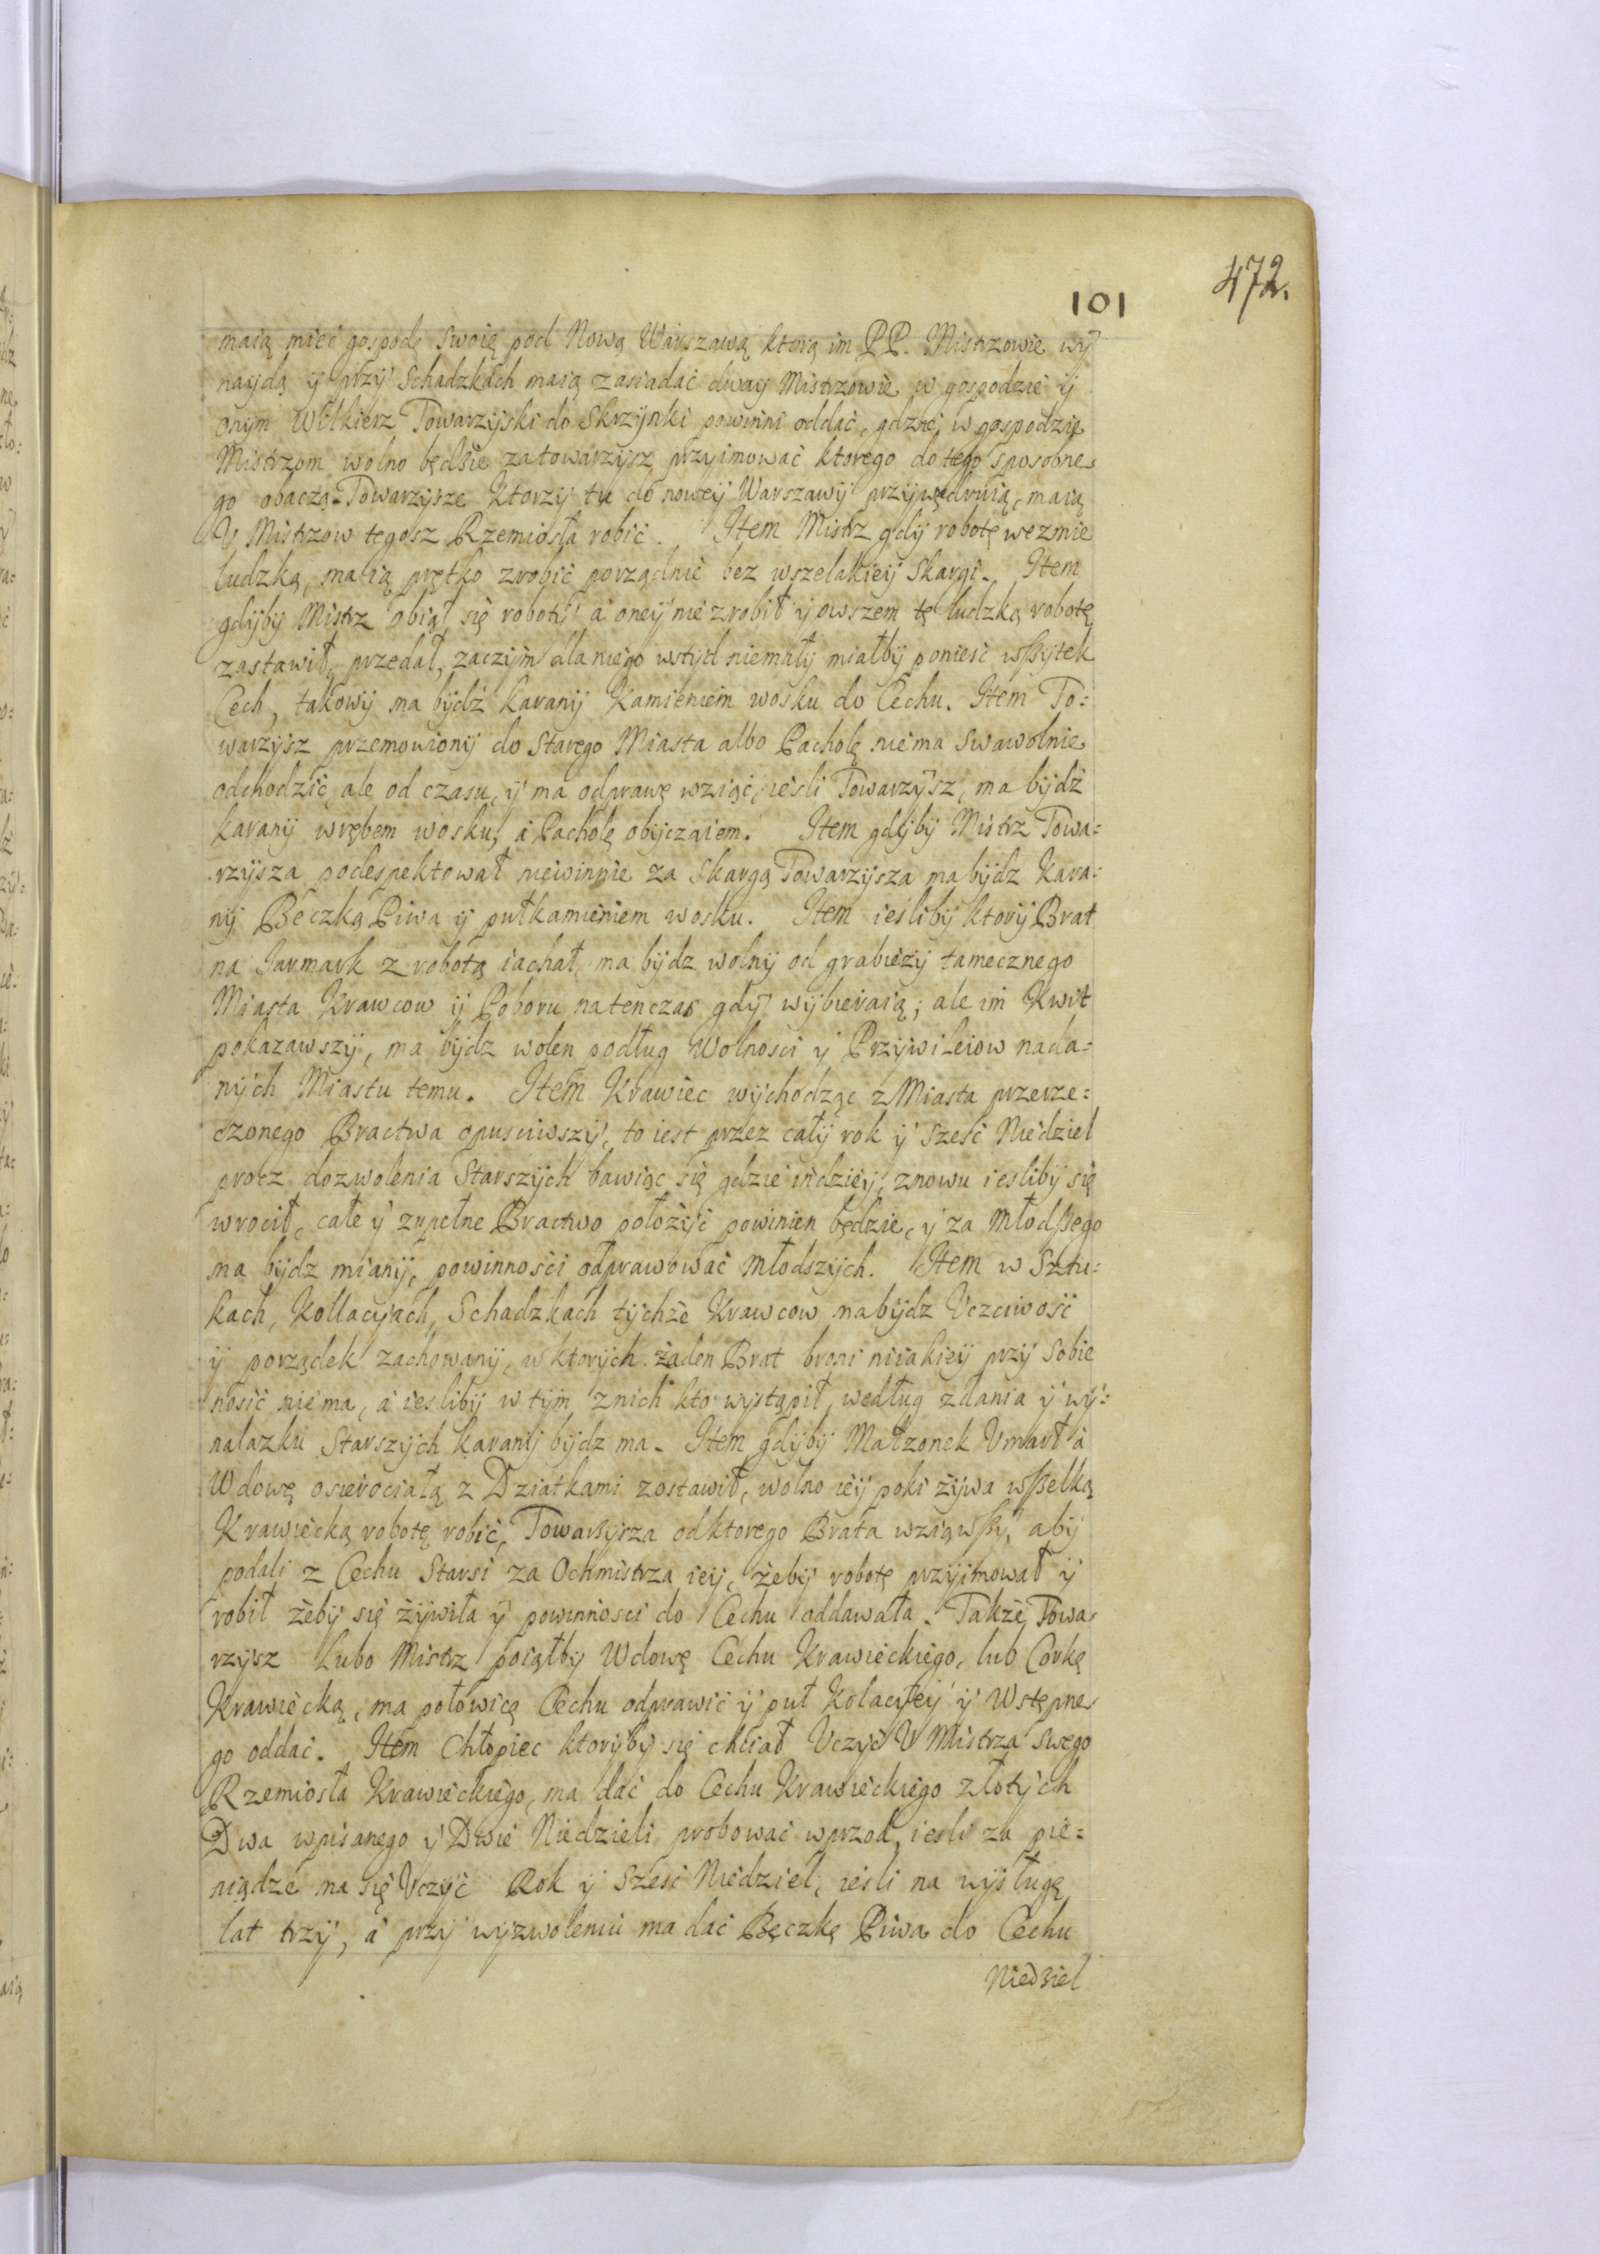 472.
101
maią mieć gospodę swoię pod Nową Warszawą ktorą im PP. Mistrzowie wÿ
naydą ÿ przÿ Schadzkach maią zasiadać dway Mistrzowie w gospodzie ÿ
onÿm Wilkierz Towarzÿski do Skrzÿnki powinni oddać, gdzie w gospodzie
Mistrzom wolno będzie za towarzÿsz przÿimować ktorego do tego sposobne
go obaczą. Towarzÿsze ktorzÿ tu do noweÿ Warszawÿ przÿwędruią, maią
U Mistrzow tegosz Rzemiosła robić. Item Mistrz gdÿ robotę wezmie
ludzką, ma ią prętko zrobić porządnie bez wszelakieÿ Skargi. Item
gdÿby Mistrz obiął się robotÿ a oneÿ nie zrobił ÿ owszem tę ludzką robotę
zastawił, przedał, zaczÿm dla niego wstÿd niemałÿ miałbÿ ponieść wßÿtek
Cech, takowÿ ma bÿdź karanÿ Kamieniem wosku do Cechu. Item To:
warzÿsz przemowionÿ do Starego Miasta albo Pacholę nie ma swawolnie
odchodzić, ale od czasu, ÿ ma odprawę wziąć, iesli Towarzÿsz, ma bÿdź
karanÿ wrębem wosku, a Pacholę obÿczaiem. Item gdÿbÿ Mistrz Towa:
rzÿsza podespektował niewinnie za Skargą Towarzÿsza ma bÿdz kara:
nÿ Beczką Piwa ÿ pułkamieniem wosku. Item iesliby ktorÿ Brat
na Jarmark z robotą iachał, ma bÿdz wolnÿ od grabieżÿ tamecznego
Miasta Krawcow ÿ Poboru natenczas gdÿ wÿbieraią; ale im Kwit
pokazawszÿ, ma bÿdz wolen podług Wolnosci ÿ Przÿwileiow nada:
nÿch Miastu temu. Item Krawiec wÿchodząc z Miasta przerze:
czonego Bractwa opusciwszÿ, to iest przez całÿ rok ÿ szesć Niedziel
procz dozwolenia Starszÿch bawiąc się gdzie indzieÿ, znowu iesliby się
wrocił, całe ÿ zupełne Bractwo położÿć powinien będzie, ÿ za Młodßego
ma bÿdz mianÿ, powinnosci odprawować Młodszÿch. Item w Sztu:
kach, Kollacÿach, Schadzkach tÿchże Krawcow ma bÿdz Uczciwość
ÿ porządek zachowanÿ, w ktorÿch żaden Brat broni niiakieÿ przÿ sobie
nosić nie ma, a iesliby w tÿm z nich kto wystąpił, według zdania ÿ wÿ:
nalazku Starszÿch karanÿ bÿdz ma. Item gdÿbÿ Małzonek Umarł a
Wdowę osierociałą z Dziatkami zostawił, wolno ieÿ poki żÿwa wßelką
Krawiecką robotę robić, Towarzÿsza od ktorego Brata wziąwßÿ, abÿ
podali z Cechu Starsi za Ochmistrza ieÿ, żebÿ robotę przÿimował ÿ
robił żebÿ się żÿwiła ÿ powinnosci do Cechu oddawała. Także Towa
rzÿsz Lubo Mistrz poiąłby Wdowę Cechu Krawieckiego, lub Corkę
Krawiecką, ma połowicę Cechu odprawić ÿ puł Kolacÿeÿ ÿ Wstępne
go oddać. Item Chłopiec ktorÿbÿ się chciał Uczÿć U Mistrza swego
Rzemiosła Krawieckiego, ma dać do Cechu Krawieckiego złotÿch
Dwa wpisanego ÿ Dwie Niedzieli probować wprzod, iesli za pie:
niądze ma się Uczÿć Rok ÿ Szesć Niedziel, iesli na wÿsługę
lat trzÿ, a przÿ wyzwoleniu ma dać Beczkę Piwa do Cechu
Niedziel